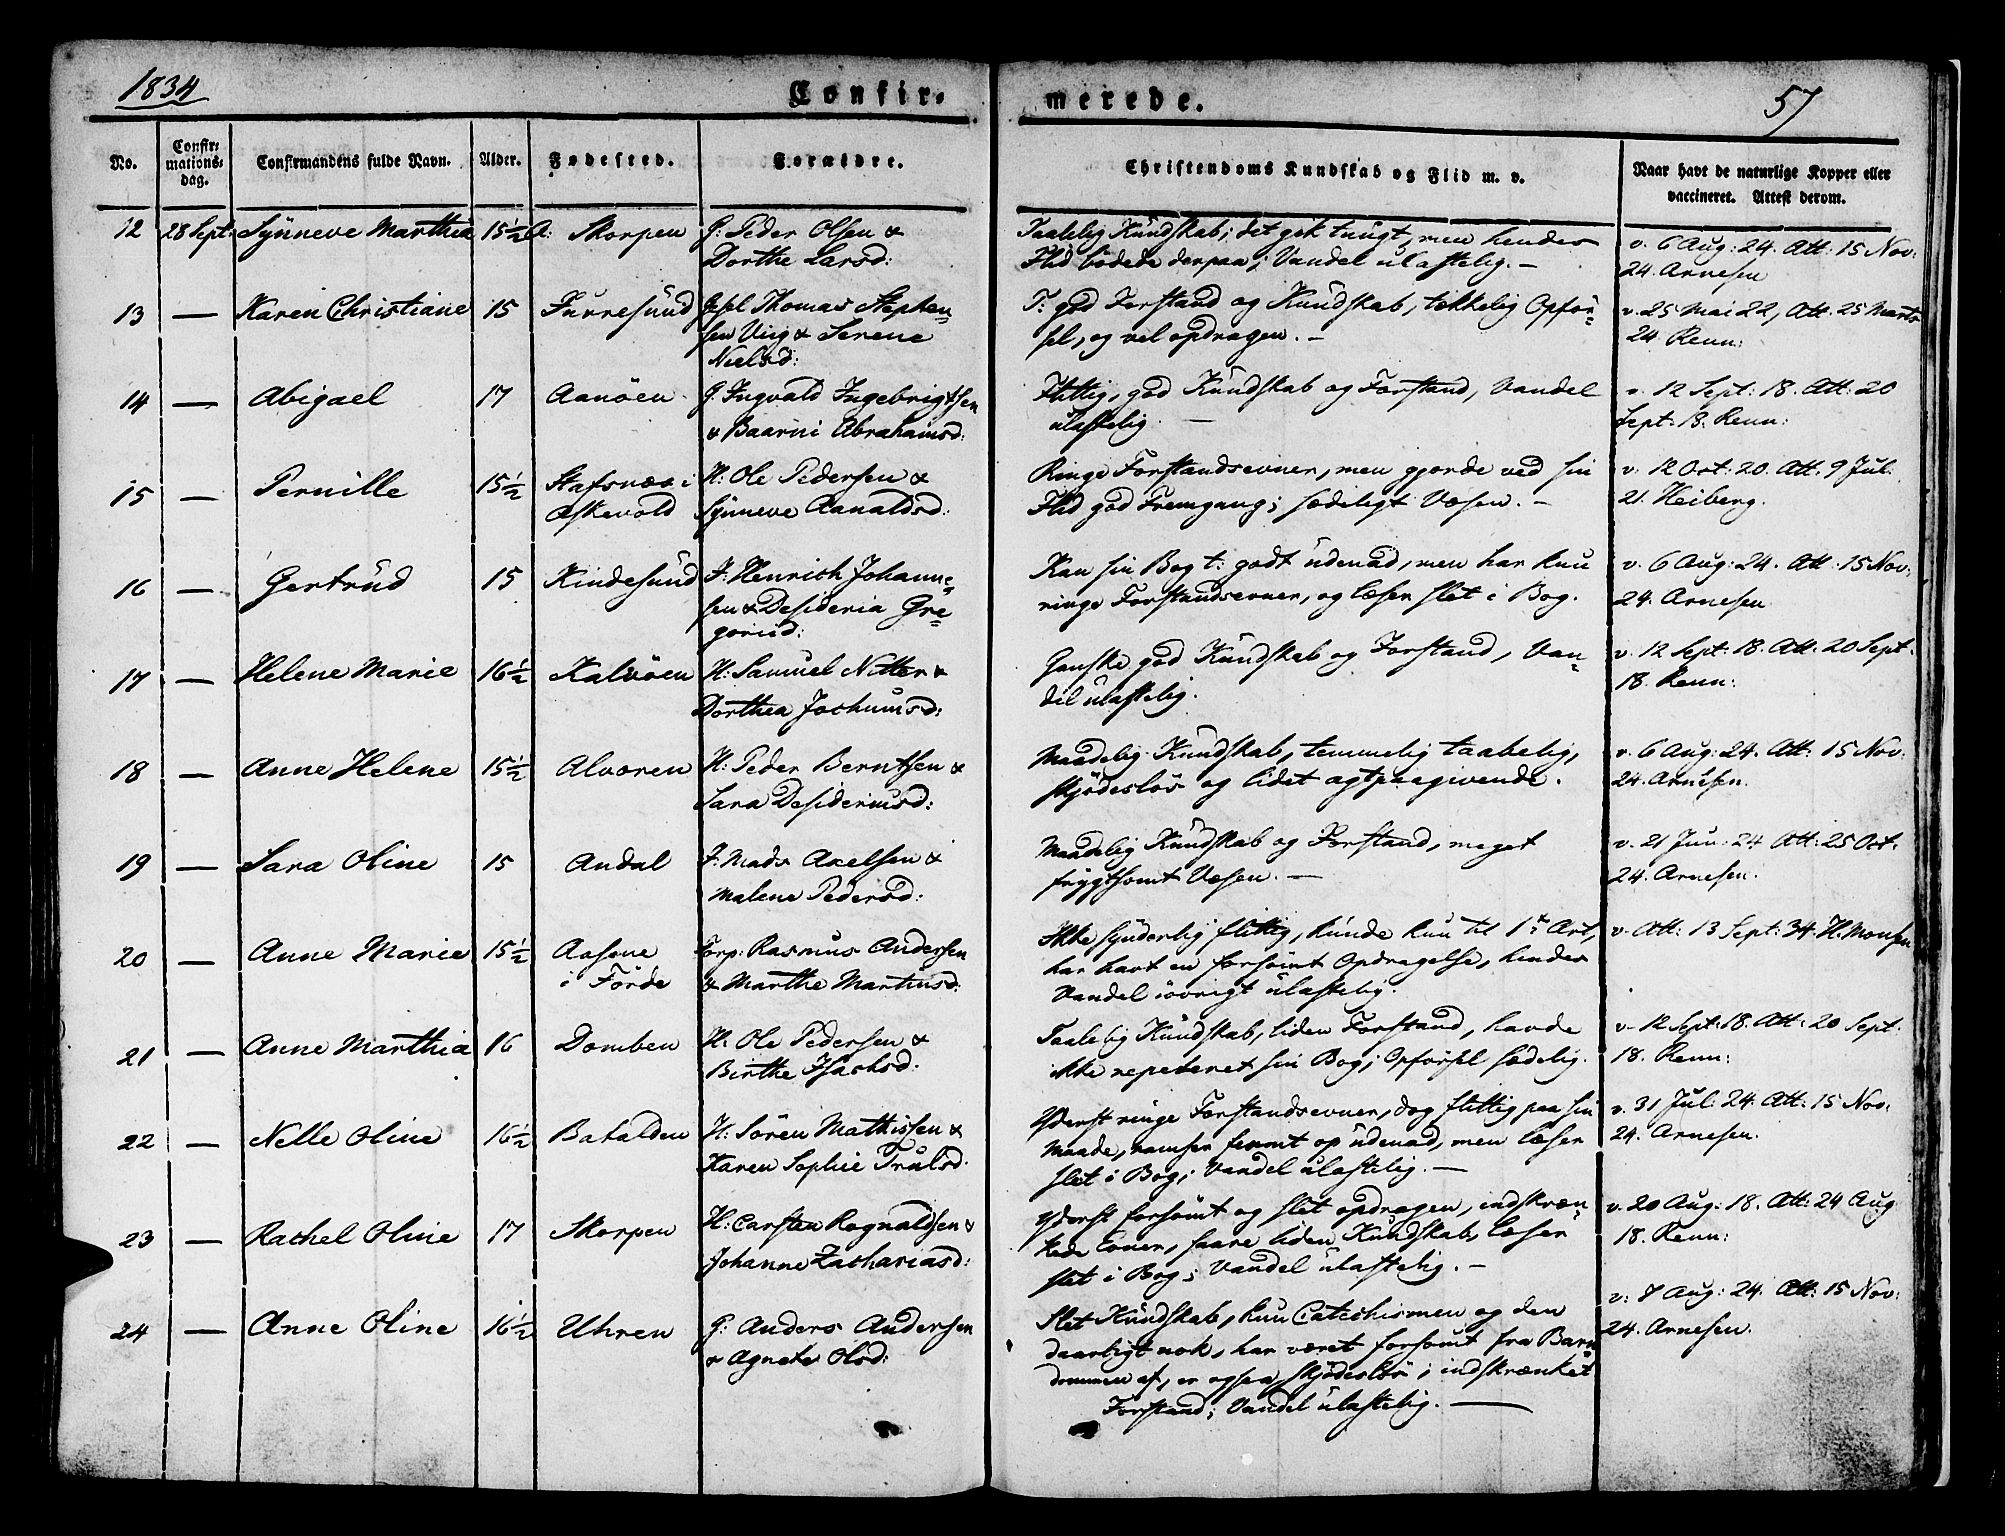 1834
Confir-
merede.
57
No.
Confir-
mations-
dag.
Confirmandens fulde Navn.
Alder.
Fødested.
Forældre.
Christendoms Kundskab og Flid m. v.
Naar havt de naturlige Kopper eller
vaccineret. Attest derom.
12 28 Sept: Synneve Marthea 15½ Skorpen G: Peder Olsen &
Dorthe Larsd:
Taalelig Kundskab; det gik tungt, men hendes
Flid bødede derpaa; Vandel ulastelig. –
v. 6 Aug: 24. Att: 15 Nov:
24. Arnesen
13 — Karen Christiane 15 Furresund Gjsl Thomas Stephen=
sen Ving & Serene
Nielsd:
T: god Forstand og Kundskab, tækkelig Opför=
sel, og vel opdragen. –
v. 25 Mai 22, Att: 25 Marts
24 Renn:
14 — Abigael 17 Aanöen G. Ingvald Ingebrigtsen
& Baarni Abrahamsd:
Flittig, god Kundskab og Forstand, Vandel
ulastelig. —
v. 12 Sept: 18. Att: 20
Sept: 18. Renn:
15 — Pernille 15½ Stafsnæs i
Askevold
H: Ole Pedersen &
Synneve Aanaldsd:
Ringe Forstandsevner, men gjorde ved sin
Flid god Fremgang; sædeligt Væsen. –
v. 12 Oct: 20. Att. 9 Jul.
21. Heiberg.
16 — Gertrud 15 Kindesund J: Henrich Johanne=
sen & Desideria Gre=
goriid:
Kan sin Bog t: godt udenad, men har kun
ringe Forstandsevner, og læser slet i Bog.
v. 6 Aug: 24. Att: 15 Nov:
24. Arnesen
17 — Helene Marie 16½ Kalvöen H: Samuel Nitter &
Dorthea Jochumsd:
Ganske god Kundskab og Forstand, Van=
del ulastelig.
v. 12 Sept: 18. Att: 20 Sept.
18. Renn:
18 — Anne Helene 15½ Alvoren H: Peder Berntsen &
Sara Desideriusd:
Maadelig Kundskab, temmelig taabelig,
skjödeslös og lidet agtpaagivende.
v. 6 Aug: 24. Att: 15 Nov:
24. Arnesen.
19 — Sara Oline 15 Andal J: Mads Axelsen &
Malene Pedersd:
Maadelig Kundskab og Forstand, meget
frygtsomt Væsen. —
v. 21 Jun: 24 Att: 25 Oct.
24. Arnesen.
20 — Anne Marie 15½ Aasene
i Förde
Forp: Rasmus Andersen
& Marthe Martinsd:
Ikke synderlig flittig, kunde kun til 1ste Art,
har havt en forsömt Opdragelse, hendes
Vandel iövrigt ulastelig.
v. Att: 13 Sept: 34. H. Monsen
21 — Anne Marthea 16 Domben H: Ole Pedersen &
Birthe Isachsd:
Taalelig Kundskab, liden Forstand, havde
ikke repeteret sin Bog; Opförsel sædelig.
v. 12 Sept: 18. Att: 20 Sept:
18. Renn:
22 — Nelle Oline 16½ Batalden H: Sören Mathissen &
Karen Sophie Trulsd.
Yderst ringe Forstandsevner, dog flittig paa sin
Maade, ramser fremt op udenad, men læser
slet i Bog; Vandel ulastelig. —
v. 31 Jul: 24. Att: 15 Nov:
24. Arnesen.
23 — Rachel Oline 17 Skorpen H: Carsten Rognaldsen &
Johanne Zachariasd:
Yderst forsömt og slet opdragen, indskræn=
kede Evner, saare liden Kundskab, læser
slet i Bog; Vandel ulastelig. –
v. 20 Aug: 18. Att: 24 Aug
18. Renn:
24 — Anne Oline 16½ Uhren G: Anders Andersen
& Agnete Olsd:
Slet Kundskab, kun Catechismen og den
daarligt nok, har været forsömt fra Barn=
dommen af, er ogsaa skjödeslös; indskrænket
Forstand; Vandel ulastelig. —
v: 8 Aug: 24. Att: 15 Nov:
24. Arnesen.